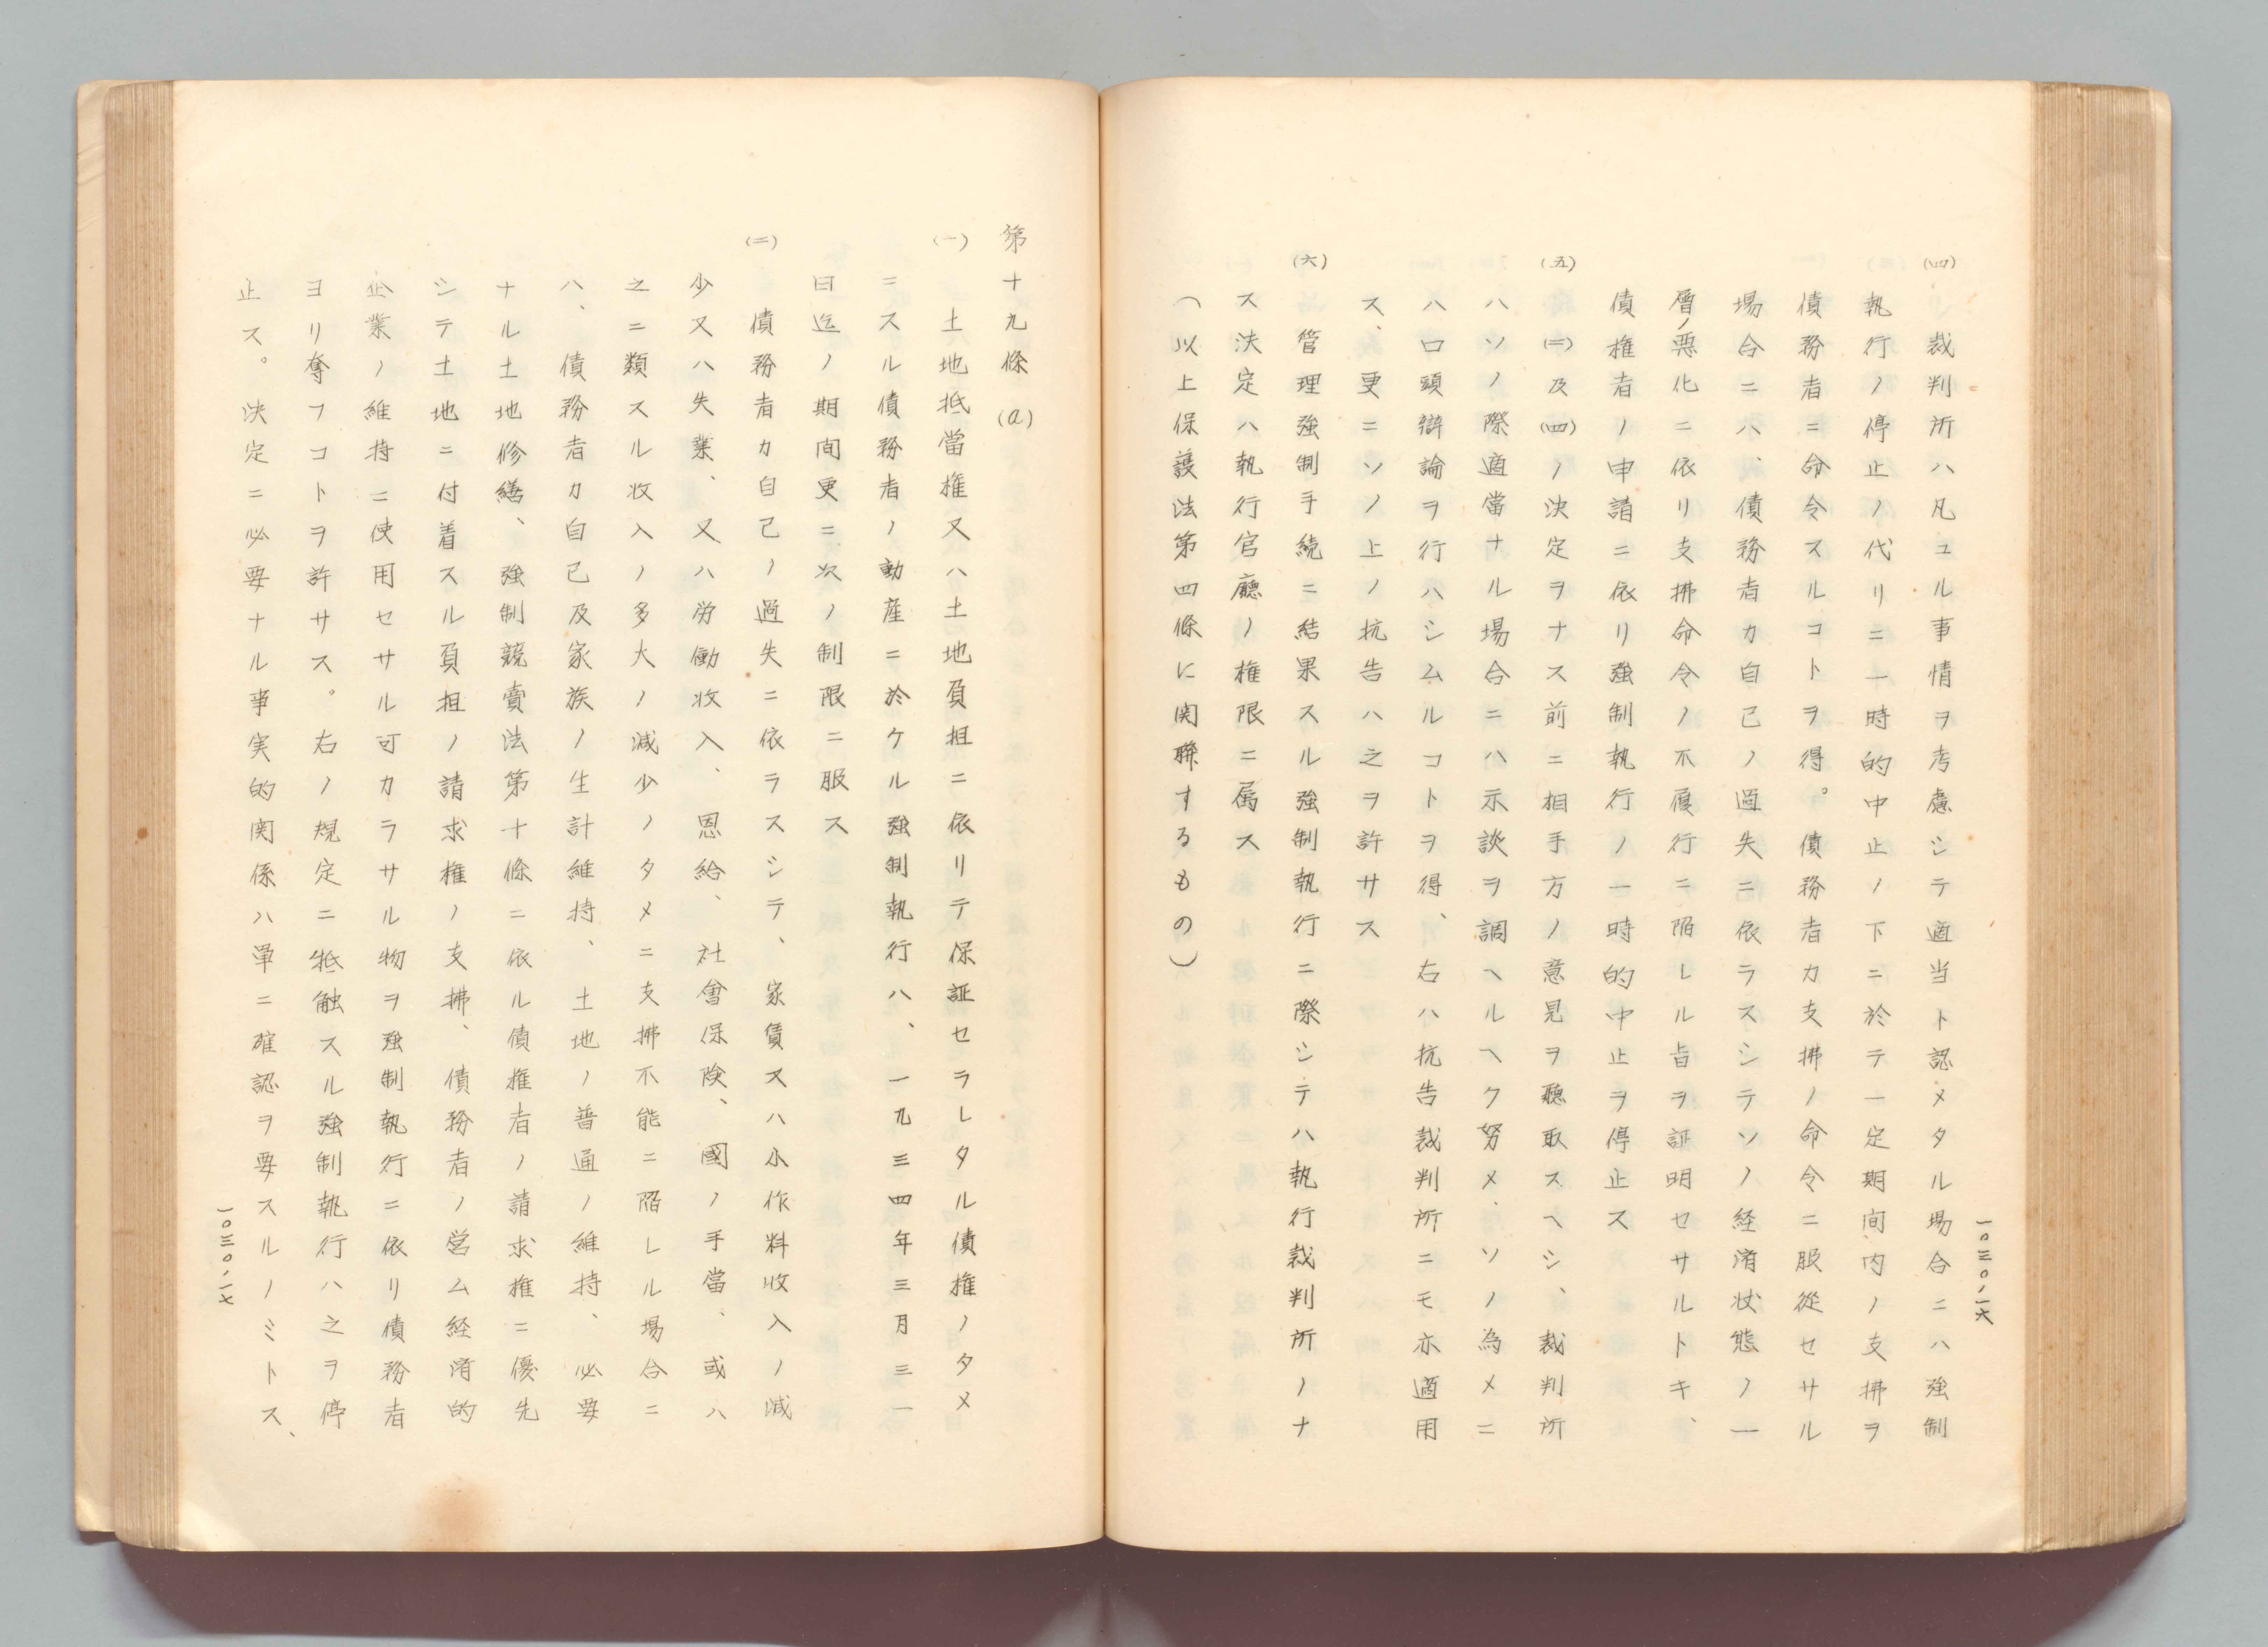 (四) 裁判所ハ凡ユル事情ヲ考慮シテ適当ト認メタル場合ニハ強制
執行ノ停止ノ代リニ一時的中止ノ下ニ於テ一定期間内ノ支拂ヲ
債務者ニ命令スルコトヲ得。債務者カ支拂ノ命令ニ服從セサル
場合ニハ、債務者カ自己ノ過失ニ依ラスシテソノ経済状態ノ一
層ノ悪化ニ依リ支拂命令ノ不履行ニ陥レル旨ヲ証明セサルトキ、
債権者ノ申請ニ依リ強制執行ノ一時的中止ヲ停止ス
(五) (二)及(四)ノ決定ヲナス前ニ相手方ノ意見ヲ聽取スヘシ、裁判所
ハソノ際適當ナル場合ニハ示談ヲ調ヘルヘク努メ、ソノ為メニ
ハ口頭辯論ヲ行ハシムルコトヲ得、右ハ抗告裁判所ニモ亦適用
ス、更ニソノ上ノ抗告ハ之ヲ許サス
(六) 管理強制手続ニ結果スル強制執行ニ際シテハ執行裁判所ノナ
ス決定ハ執行官廳ノ権限ニ属ス
(以上保護法第四條に関聯するもの)
一〇三〇、一六
第十九條(a)
(一) 土地抵當権又ハ土地負担ニ依リテ保証セラレタル債権ノタメ
ニスル債務者ノ動産ニ於ケル強制執行ハ、一九三四年三月三一
日迄ノ期間更ニ次ノ制限ニ服ス
(二) 債務者カ自己ノ過失ニ依ラスシテ、家賃又ハ小作料収入ノ減
少又ハ失業、又ハ労働收入、恩給、社會保険、國ノ手當、或ハ
之ニ類スル收入ノ多大ノ減少ノタメニ支拂不能ニ陥レル場合ニ
ハ、債務者カ自己及家族ノ生計維持、土地ノ普通ノ維持、必要
ナル土地修繕、強制競賣法第十條ニ依ル債権者ノ請求権ニ優先
シテ土地ニ付着スル負担ノ請求権ノ支拂、債務者ノ営ム経済的
企業ノ維持ニ使用セサル可カラサル物ヲ強制執行ニ依リ債務者
ヨリ奪フコトヲ許サス。右ノ規定ニ牴触スル強制執行ハ之ヲ停
止ス。決定ニ必要ナル事実的関係ハ単ニ確認ヲ要スルノミトス、
一〇三〇、一七